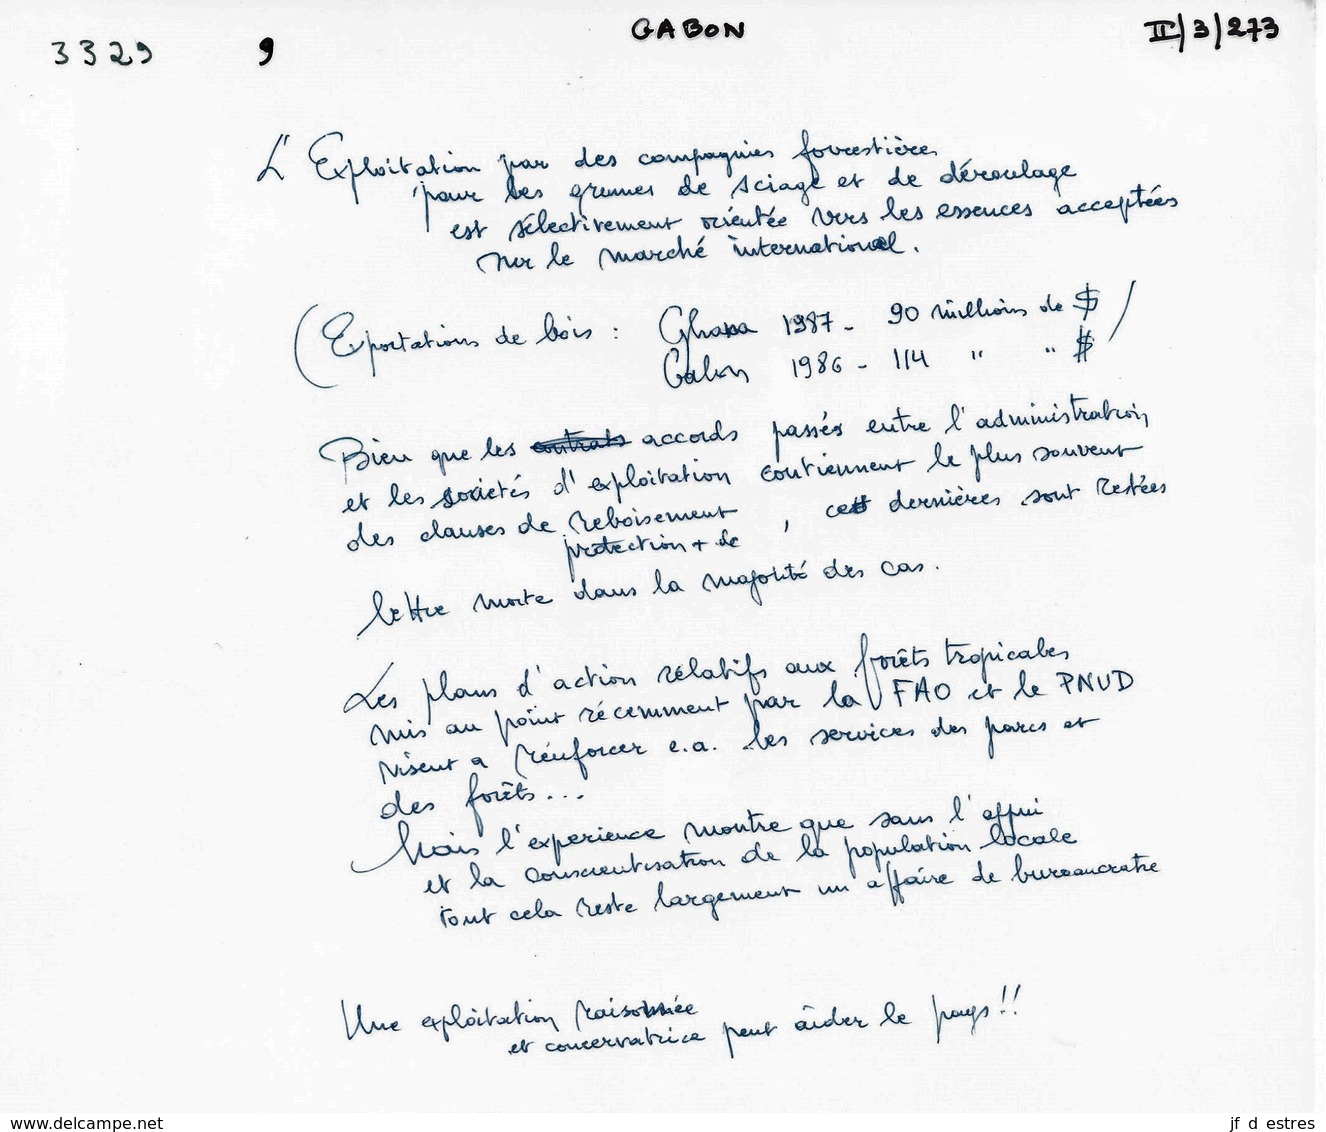 GABON
II/3/273
3329
9
L'Exploitation par des compagnies forrestières
pour les grumes de sciage et de déroulage
est sélectivement orientée vers les essences acceptées
sur le marché international.
(Exportations de bois : Ghana 1987 - 90 millions de $)
Gabon 1986 - 114 " " $
Bien que les contrats accords passés entre l'administration
et les societés d'exploitation contiennent le plus souvent
des clauses de reboisement, cett dernières sont restées
protection + de
lettre morte dans la majorité des cas.
Les plans d'action rélatifs aux forêts tropicales
mis au point récemment par la FAO et le PNUD
visent a rénforcer e.a. les services des parcs et
des forêts...
Mais l'experience montre que sans l'appui
et la conscientisation de la population locale
tout cela reste largement un affaire de bureaucratie
Une exploitation raisonnée
et conservatrice peut aider le pays!!
www.delcampe.net
jf d estres